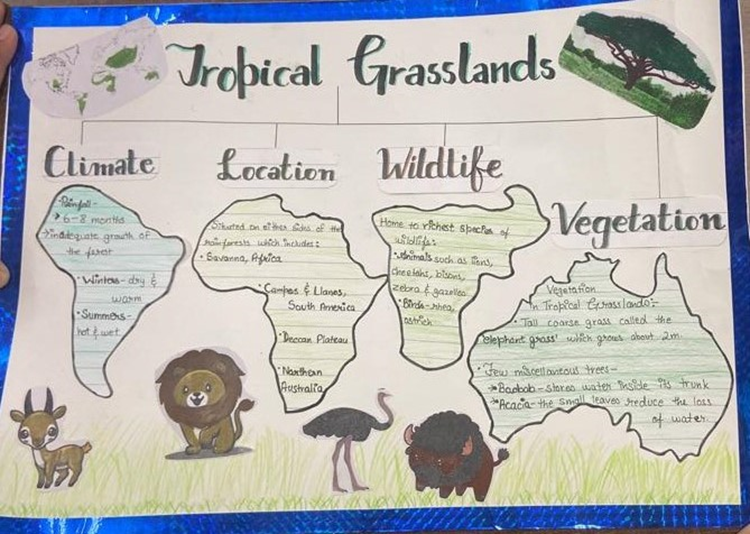 Tropical Grasslands
Climate
Rainfall-
6-8 months
inadequate growth of
the forest
Winters- dry &
warm
Summers-
hot & wet
Location
Situated on either sides of the
rainforests which includes:
Savanna, Africa
Campos & Llanos,
South America
Deccan Plateau
Northern
Australia
Wildlife
Home to richest species of
wildlife:
Animals such as lions,
cheetahs, bisons,
zebra & gazelles
Birds-rhea,
ostrich
Vegetation
Vegetation
In Tropical Grasslands:-
Tall coarse grass called the
'elephant grass' which grows about 2m
Few miscellaneous trees-
Baobab- stores water inside its trunk
Acacia- the small leaves reduce the loss
of water.